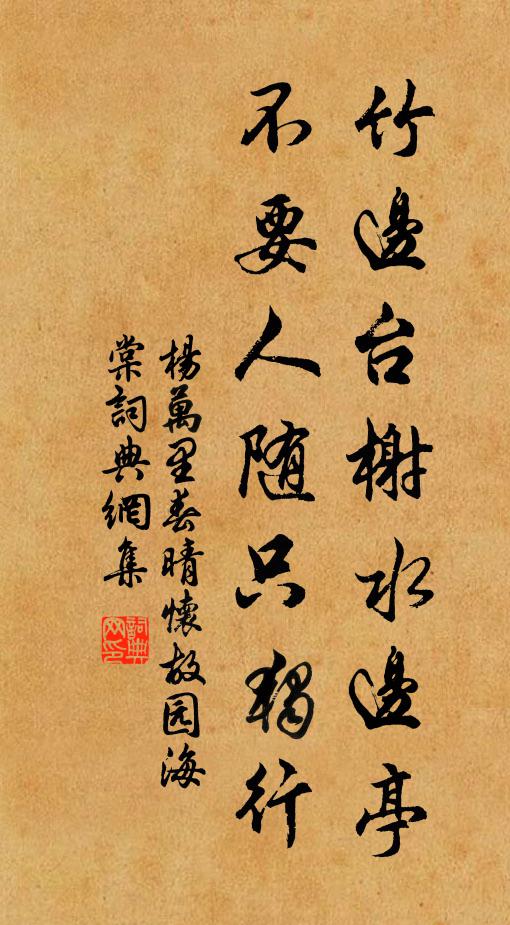 竹邊台榭水邊亭
不要人随只獨行
楊萬里春晴懷故园海
棠詞典網集
詞典网印